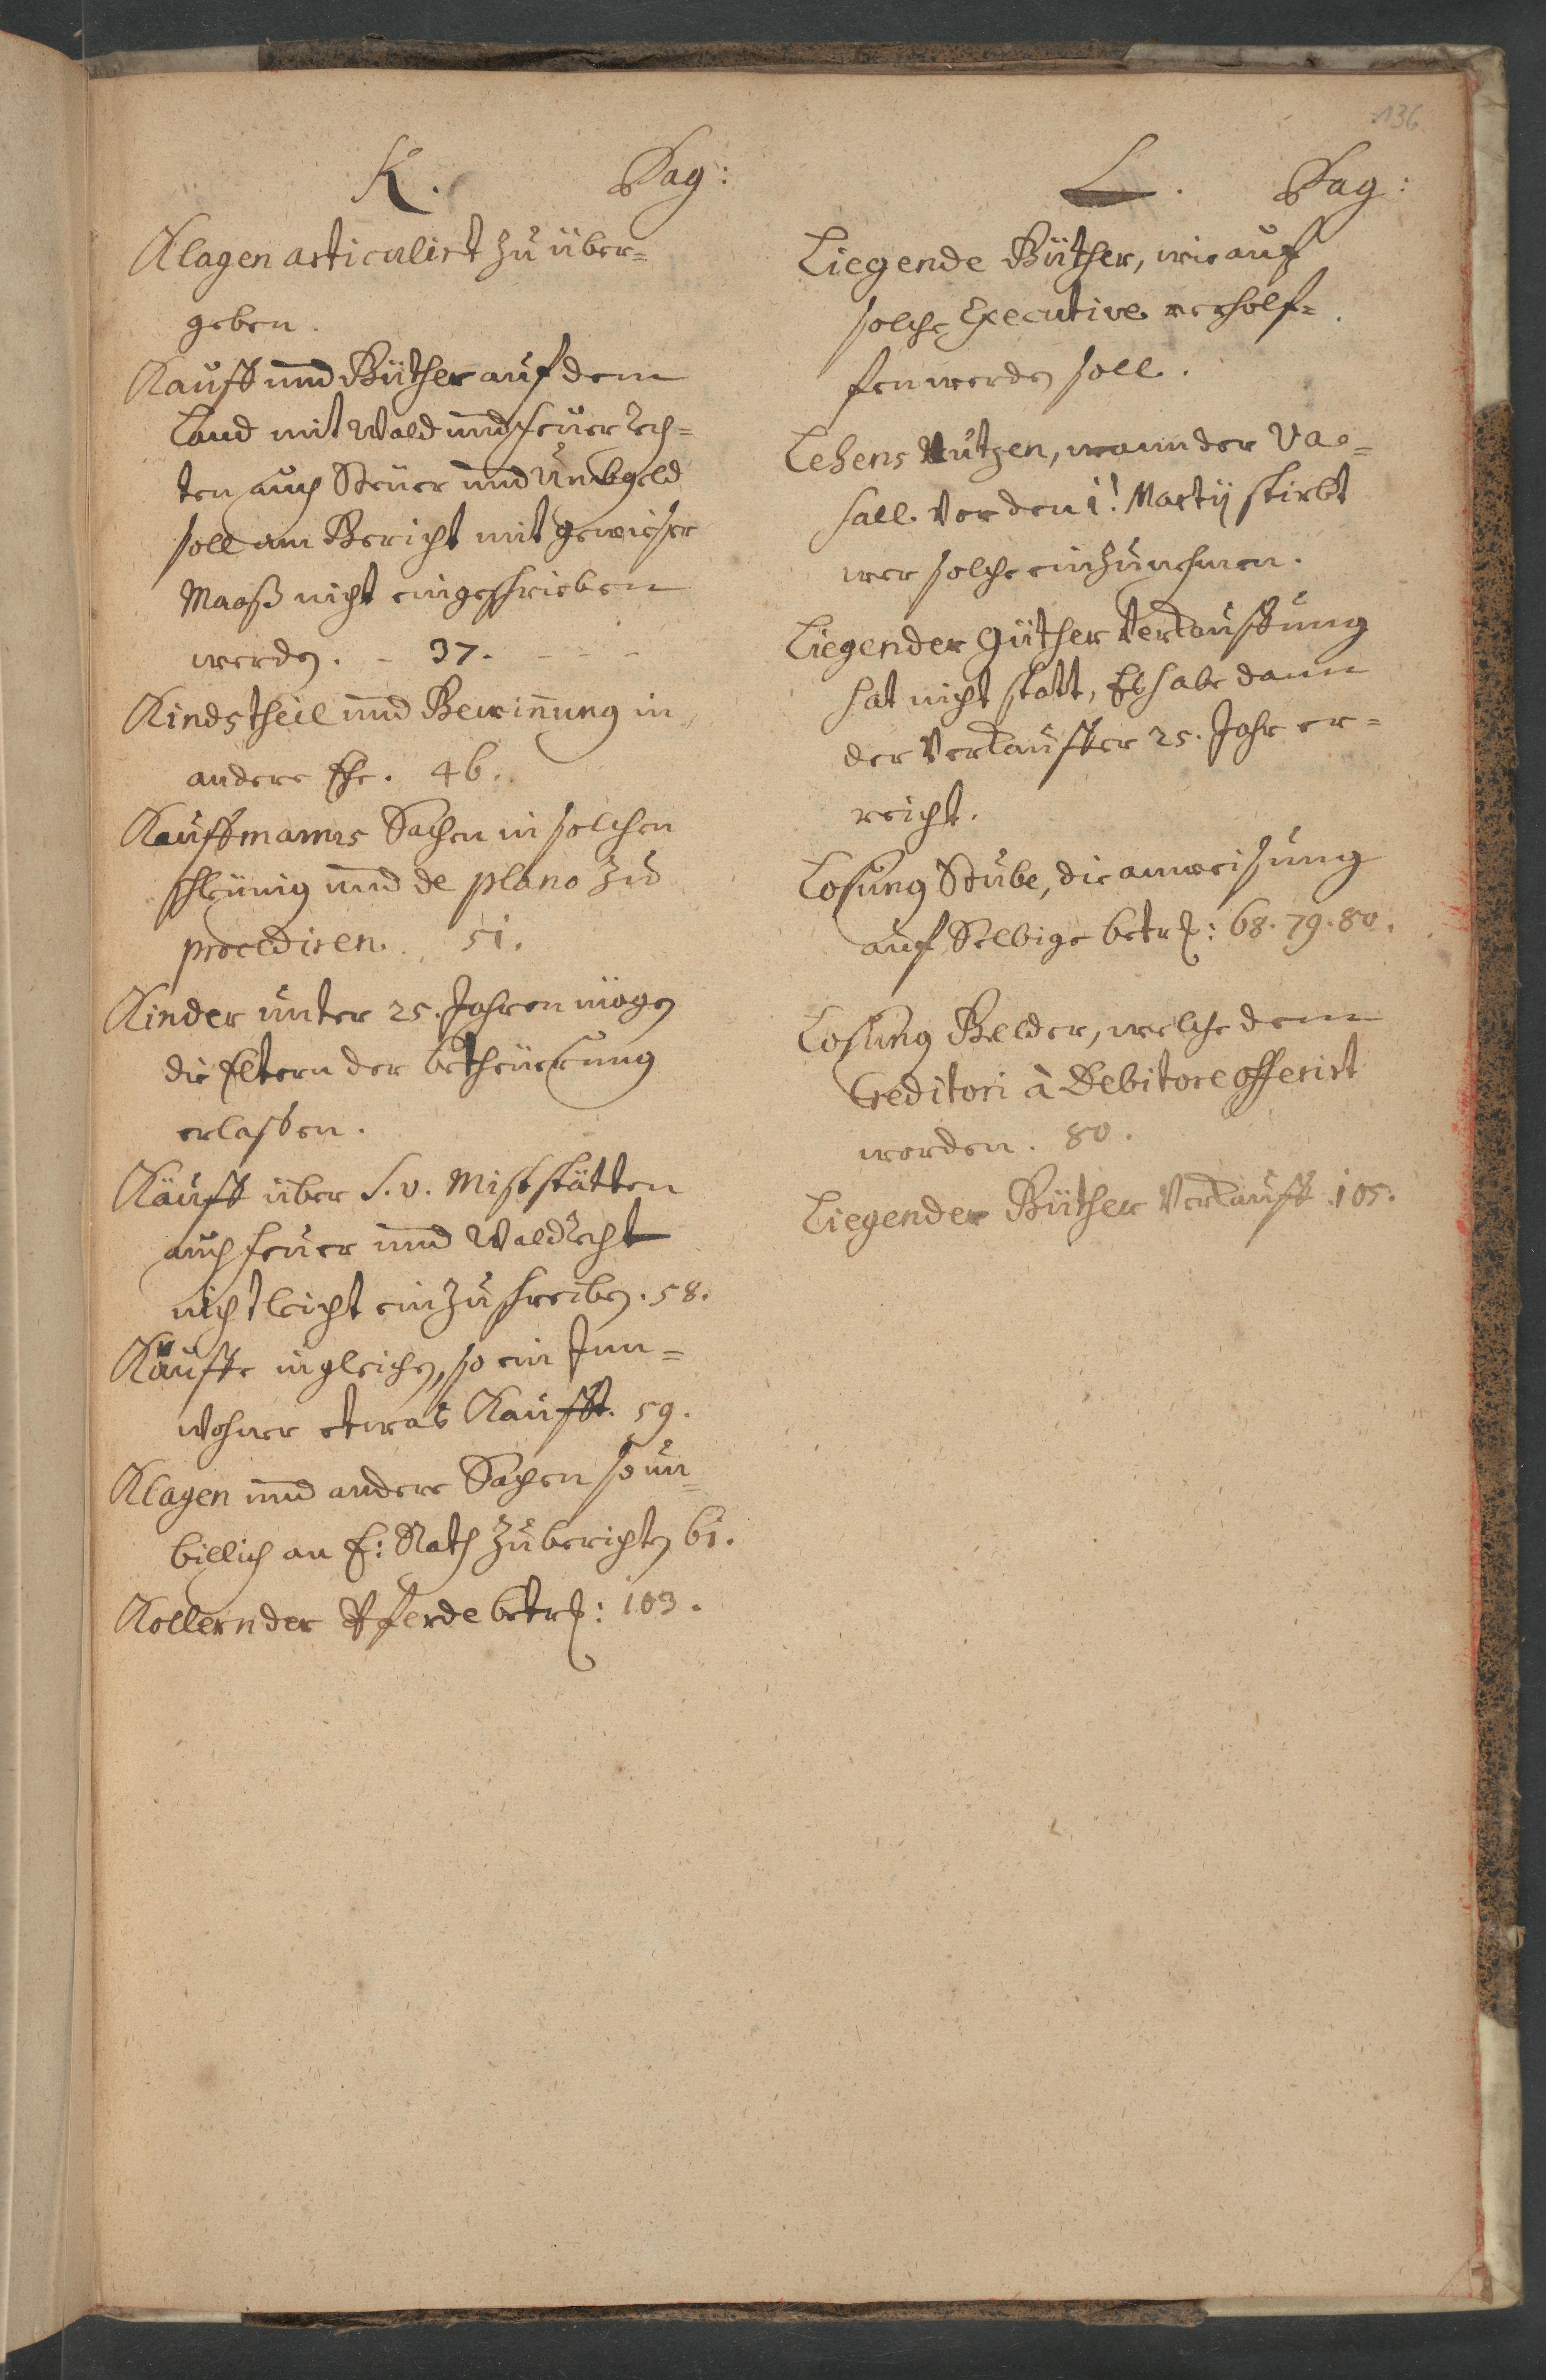 136
K. Pag:
Klagen articulirt zu über=
geben.
Kauff und Güther auf dem
Land mit Wald und feuer Rech=
ten auch Steuer und Umbgeld
soll am Gericht mit gewieser
Maaß nicht eingeschrieben
werden. - 37. - - -
Kindstheil und Gewinnung in
andere Ehe. 46.
Kauffmanns Sachen in solchen
schleunig und de plano zu
procediren. 51.
Kinder unter 25. Jahren mögen
die Eltern der betheuerung
erlassen.
Käuff über S. v. Miststätten
auch feuer und Waldrecht
nicht leicht einzuschreiben. 58.
Käuffe ingleichen, so ein Inn=
wohner etwas Kaufft. 59.
Klagen und andere Sachen so un=
billich an E: Rath zu berichten 61.
Kollern der Pferde betr: 103.
L. Pag:
Liegende Güther, wie auf
solche Executive verholf=
fen werden soll.
Lehens Nutzen, wann der Va=
sall vor den 1. Martij stirbt
wer solche einzunehmen.
Liegender Güther Verkauffung
hat nicht statt, Es habe dann
der Verkauffer 25. Jahr er=
reicht.
Losung Stube, die anweisung
auf Selbige betr: 68. 79. 80.
Losung Gelder, welche dem
Creditori à Debitore offerirt
worden. 80.
Liegender Güther Verkauff. 105.